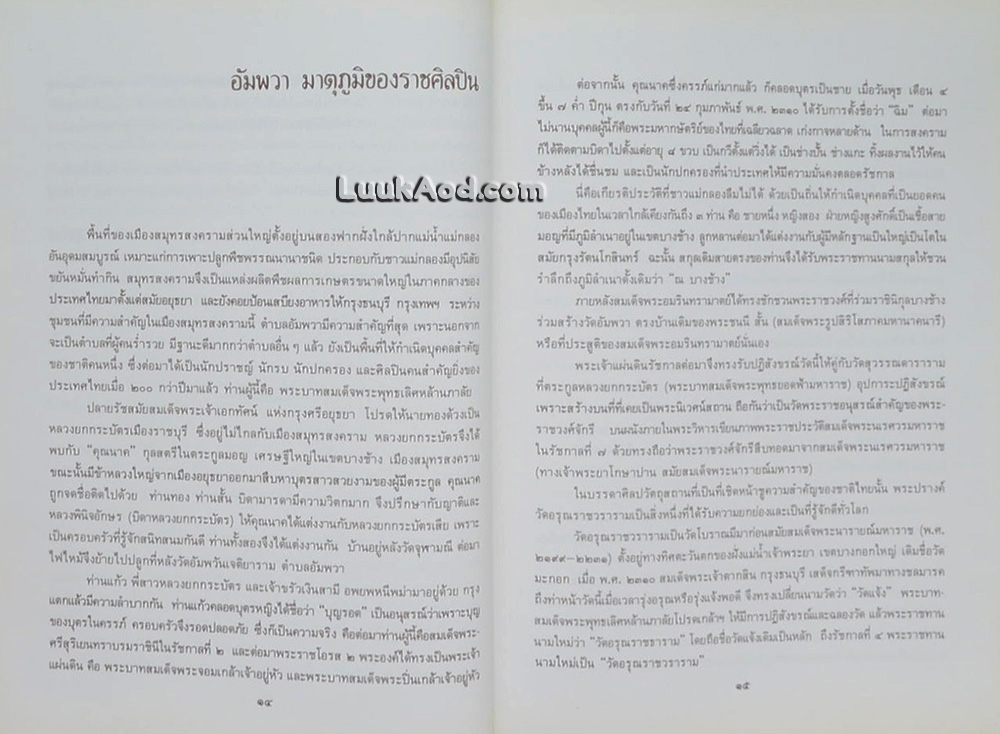 อัมพวา มาตุภูมิของราชศิลปิน
LuukAod.com
พื้นที่ของเมืองสมุทรสงครามส่วนใหญ่ตั้งอยู่บนสองฟากฝั่งใกล้ปากแม่น้ำแม่กลอง
อันอุดมสมบูรณ์ เหมาะแก่การเพาะปลูกพืชพรรณนานาชนิด ประกอบกับชาวแม่กลองมีอุปนิสัย
ขยันหมั่นทำกิน สมุทรสงครามจึงเป็นแหล่งผลิตพืชผลการเกษตรขนาดใหญ่ในภาคกลางของ
ประเทศไทยมาตั้งแต่สมัยอยุธยา และยังคอยป้อนเสบียงอาหารให้กรุงธนบุรี กรุงเทพฯ ระหว่าง
ชุมชนที่มีความสำคัญในเมืองสมุทรสงครามนี้ ตำบลอัมพวามีความสำคัญที่สุด เพราะนอกจาก
จะเป็นตำบลที่ผู้คนร่ำรวย มีฐานะดีมากกว่าตำบลอื่น ๆ แล้ว ยังเป็นพื้นที่ให้กำเนิดบุคคลสำคัญ
ของชาติคนหนึ่ง ซึ่งต่อมาได้เป็นนักปราชญ์ นักรบ นักปกครอง และศิลปินคนสำคัญยิ่งของ
ประเทศไทยเมื่อ ๒๐๐ กว่าปีมาแล้ว ท่านผู้นี้คือ พระบาทสมเด็จพระพุทธเลิศหล้านภาลัย
ปลายรัชสมัยสมเด็จพระเจ้าเอกทัศน์ แห่งกรุงศรีอยุธยา โปรดให้นายทองด้วงเป็น
หลวงยกกระบัตรเมืองราชบุรี ซึ่งอยู่ไม่ไกลกับเมืองสมุทรสงคราม หลวงยกกระบัตรจึงได้
พบกับ "คุณนาค" กุลสตรีในตระกูลมอญ เศรษฐีใหญ่ในเขตบางช้าง เมืองสมุทรสงคราม
ขณะนั้นมีข้าหลวงใหญ่จากเมืองอยุธยาออกมาสืบหาบุตรสาวสวยงามของผู้มีตระกูล คุณนาค
ถูกจดชื่อติดไปด้วย ท่านทอง ท่านสั้น บิดามารดามีความวิตกมาก จึงปรึกษากับญาติและ
หลวงพินิจอักษร (บิดาหลวงยกกระบัตร) ให้คุณนาคได้แต่งงานกับหลวงยกกระบัตรเสีย เพราะ
เป็นครอบครัวที่รู้จักสนิทสนมกันดี ท่านทั้งสองจึงได้แต่งงานกัน บ้านอยู่หลังวัดจุฬามณี ต่อมา
ไฟไหม้จึงย้ายไปปลูกที่หลังวัดอัมพวันเจติยาราม ตำบลอัมพวา
ท่านแก้ว พี่สาวหลวงยกกระบัตร และเจ้าขรัวเงินสามี อพยพหนีพม่ามาอยู่ด้วย กรุง
แตกแล้วมีความลำบากกัน ท่านแก้วคลอดบุตรหญิงได้ชื่อว่า "บุญรอด" เป็นอนุสรณ์ว่าเพราะบุญ
ของบุตรในครรภ์ ครอบครัวจึงรอดปลอดภัย ซึ่งก็เป็นความจริง คือต่อมาท่านผู้นี้คือสมเด็จพระ-
ศรีสุริเยนทราบรมราชินีในรัชกาลที่ ๒ และต่อมาพระราชโอรส ๒ พระองค์ได้ทรงเป็นพระเจ้า
แผ่นดิน คือ พระบาทสมเด็จพระจอมเกล้าเจ้าอยู่หัว และพระบาทสมเด็จพระปิ่นเกล้าเจ้าอยู่หัว
๑๔
ต่อจากนั้น คุณนาคซึ่งครรภ์แก่มากแล้ว ก็คลอดบุตรเป็นชาย เมื่อวันพุธ เดือน ๔
ขึ้น ๗ ค่ำ ปีกุน ตรงกับวันที่ ๒๔ กุมภาพันธ์ พ.ศ. ๒๓๑๐ ได้รับการตั้งชื่อว่า "ฉิม" ต่อมา
ไม่นานบุคคลผู้นี้ก็คือพระมหากษัตริย์ของไทยที่เฉลียวฉลาด เก่งกาจหลายด้าน ในการสงคราม
ก็ได้ติดตามบิดาไปตั้งแต่อายุ ๘ ขวบ เป็นกวีตั้งแต่วิ่งได้ เป็นช่างปั้น ช่างแกะ ทิ้งผลงานไว้ให้คน
ข้างหลังได้ชื่นชม และเป็นนักปกครองที่นำประเทศให้มีความมั่นคงตลอดรัชกาล
นี่คือเกียรติประวัติที่ชาวแม่กลองลืมไม่ได้ ด้วยเป็นถิ่นให้กำเนิดบุคคลที่เป็นยอดคน
ของเมืองไทยในเวลาใกล้เคียงกันถึง ๓ ท่าน คือ ชายหนึ่ง หญิงสอง ฝ่ายหญิงสูงศักดิ์เป็นเชื้อสาย
มอญที่มีภูมิลำเนาอยู่ในเขตบางช้าง ลูกหลานต่อมาได้แต่งงานกับผู้มีหลักฐานเป็นใหญ่เป็นโตใน
สมัยกรุงรัตนโกสินทร์ ฉะนั้น สกุลเดิมสายตรงของท่านจึงได้รับพระราชทานนามสกุลให้ชวน
รำลึกถึงภูมิลำเนาดั้งเดิมว่า "ณ บางช้าง"
ภายหลังสมเด็จพระอมรินทรามาตย์ได้ทรงชักชวนพระราชวงศ์ที่ร่วมราชินิกุลบางช้าง
ร่วมสร้างวัดอัมพวา ตรงบ้านเดิมของพระชนนี สั้น (สมเด็จพระรูปสิริโสภาคมหานาคนารี)
หรือที่ประสูติของสมเด็จพระอมรินทรามาตย์นั่นเอง
พระเจ้าแผ่นดินรัชกาลต่อมาจึงทรงรับปฏิสังขรณ์วัดนี้ให้คู่กับวัดสุวรรณดาราราม
ที่ตระกูลหลวงยกกระบัตร (พระบาทสมเด็จพระพุทธยอดฟ้ามหาราช) อุปการะปฏิสังขรณ์
เพราะสร้างบนที่ที่เคยเป็นพระนิเวศน์สถาน ถือกันว่าเป็นวัดพระราชอนุสรณ์สำคัญของพระ-
ราชวงศ์จักรี บนผนังภายในพระวิหารเขียนภาพพระราชประวัติสมเด็จพระนเรศวรมหาราช
ในรัชกาลที่ ๗ ด้วยทรงถือว่าพระราชวงศ์จักรีสืบทอดมาจากสมเด็จพระนเรศวรมหาราช
(ทางเจ้าพระยาโกษาปาน สมัยสมเด็จพระนารายณ์มหาราช)
ในบรรดาศิลปวัตถุสถานที่เป็นที่เชิดหน้าชูความสำคัญของชาติไทยนั้น พระปรางค์
วัดอรุณราชวรารามเป็นสิ่งหนึ่งที่ได้รับความยกย่องและเป็นที่รู้จักทั่วโลก
วัดอรุณราชวรารามเป็นวัดโบราณมีมาก่อนสมัยสมเด็จพระนารายณ์มหาราช (พ.ศ.
๒๑๙๙-๒๒๓๑) ตั้งอยู่ทางทิศตะวันตกของฝั่งแม่น้ำเจ้าพระยา เขตบางกอกใหญ่ เดิมชื่อวัด
มะกอก เมื่อ พ.ศ. ๒๓๑๐ สมเด็จพระเจ้าตากสิน กรุงธนบุรี เสด็จกรีฑาทัพมาทางชลมารค
ถึงท่าหน้าวัดนี้เมื่อเวลารุ่งอรุณหรือรุ่งแจ้งพอดี จึงทรงเปลี่ยนนามวัดว่า "วัดแจ้ง" พระบาท-
สมเด็จพระพุทธเลิศหล้านภาลัยโปรดเกล้าฯ ให้มีการปฏิสังขรณ์และฉลองวัด แล้วพระราชทาน
นามใหม่ว่า "วัดอรุณราชธาราม" โดยถือชื่อวัดแจ้งเดิมเป็นหลัก ถึงรัชกาลที่ ๔ พระราชทาน
นามใหม่เป็น "วัดอรุณราชวราราม"
๑๕